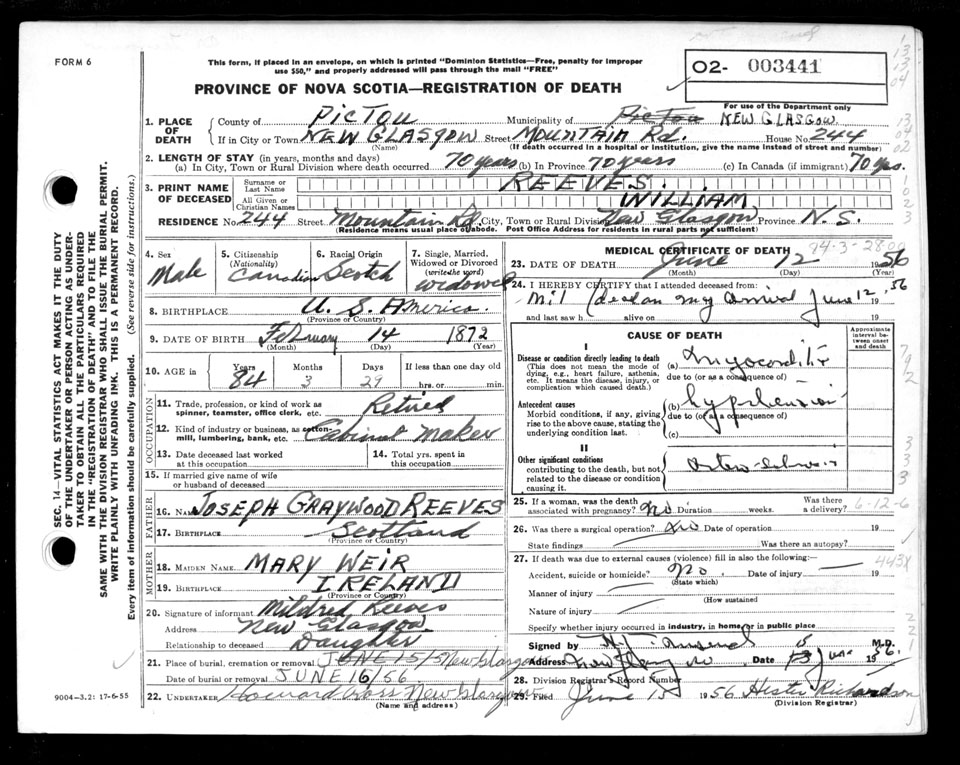 FORM 6
This form, if placed in an envelope, on which is printed "Dominion Statistics—Free, penalty for improper
use $50," and properly addressed will pass through the mail "FREE"
O2- 003441
PROVINCE OF NOVA SCOTIA—REGISTRATION OF DEATH
For use of the Department only
SEC. 14—VITAL STATISTICS ACT MAKES IT THE DUTY
OF THE UNDERTAKER OR PERSON ACTING AS UNDER-
TAKER TO OBTAIN ALL THE PARTICULARS REQUIRED
IN THE "REGISTRATION OF DEATH" AND TO FILE THE
SAME WITH THE DIVISION REGISTRAR WHO SHALL ISSUE THE BURIAL PERMIT.
WRITE PLAINLY WITH UNFADING INK. THIS IS A PERMANENT RECORD.
Every item of information should be carefully supplied. (See reverse side for instructions.)
1. PLACE OF DEATH County of PICTOU Municipality of PICTOU NEW GLASGOW
If in City or Town NEW GLASGOW Street MOUNTAIN Rd. House No. 244
(Name) (If death occurred in a hospital or institution, give the name instead of street and number)
2. LENGTH OF STAY (in years, months and days)
(a) In City, Town or Rural Division where death occurred 70 years (b) In Province 70 years (c) In Canada (if immigrant) 70 yrs.
3. PRINT NAME OF DECEASED
Surname or Last Name REEVES.
All Given or Christian Names WILLIAM
RESIDENCE No. 244 Street Mountain Rd. City, Town or Rural Division New Glasgow Province N.S.
(Residence means usual place of abode. Post Office Address for residents in rural parts not sufficient)
4. Sex Male
5. Citizenship (Nationality) Canadian
6. Racial Origin Scotch
7. Single, Married, Widowed or Divorced (write the word) widowed
8. BIRTHPLACE U. S. America.
(Province or Country)
9. DATE OF BIRTH February 14 1872
(Month) (Day) (Year)
10. AGE in Years 84 Months 3 Days 29 If less than one day old
hrs. or min.
OCCUPATION
11. Trade, profession, or kind of work as spinner, teamster, office clerk, etc. Retired
12. Kind of industry or business, as cotton-mill, lumbering, bank, etc. Cabinet Maker
13. Date deceased last worked at this occupation
14. Total yrs. spent in this occupation
15. If married give name of wife or husband of deceased
FATHER
16. NAME JOSEPH GRAYWOOD REEVES
17. BIRTHPLACE Scotland
(Province or Country)
MOTHER
18. MAIDEN NAME MARY WEIR
19. BIRTHPLACE IRELAND
(Province or Country)
20. Signature of informant Mildred Reeves
Address New Glasgow
Relationship to deceased Daughter
21. Place of burial, cremation or removal JUNE 15/5 New Glasgow
Date of burial or removal JUNE 16/56
22. UNDERTAKER Howard Ross New Glasgow
(Name and address)
9004-3.2: 17-6-55
MEDICAL CERTIFICATE OF DEATH
94-3-28
23. DATE OF DEATH June 12 1956
(Month) (Day) (Year)
24. I HEREBY CERTIFY that I attended deceased from:
Nil (dead on my arrival June 12 19 56
and last saw h alive on 19
CAUSE OF DEATH
Approximate interval between onset and death
I
Disease or condition directly leading to death
(This does not mean the mode of dying, e.g., heart failure, asthenia, etc. It means the disease, injury, or complication which caused death.)
(a) Myocarditis
due to (or as a consequence of)
Antecedent causes
Morbid conditions, if any, giving rise to the above cause, stating the underlying condition last.
(b) hypertension
due to (or as a consequence of)
(c)
II
Other significant conditions
contributing to the death, but not related to the disease or condition causing it.
25. If a woman, was the death associated with pregnancy? No Duration weeks. Was there a delivery? 6-12-6
26. Was there a surgical operation? No Date of operation 19
State findings Was there an autopsy?
27. If death was due to external causes (violence) fill in also the following: 443X
Accident, suicide or homicide? No Date of injury 19
(State which)
Manner of injury
(How sustained
Nature of injury
Specify whether injury occurred in industry, in home, or in public place
Signed by M.D.
Address New Glasgow Date 15 June 1956
28. Division Registrar's Record Number
29. Filed June 15 1956 Hester Richardson
(Division Registrar)